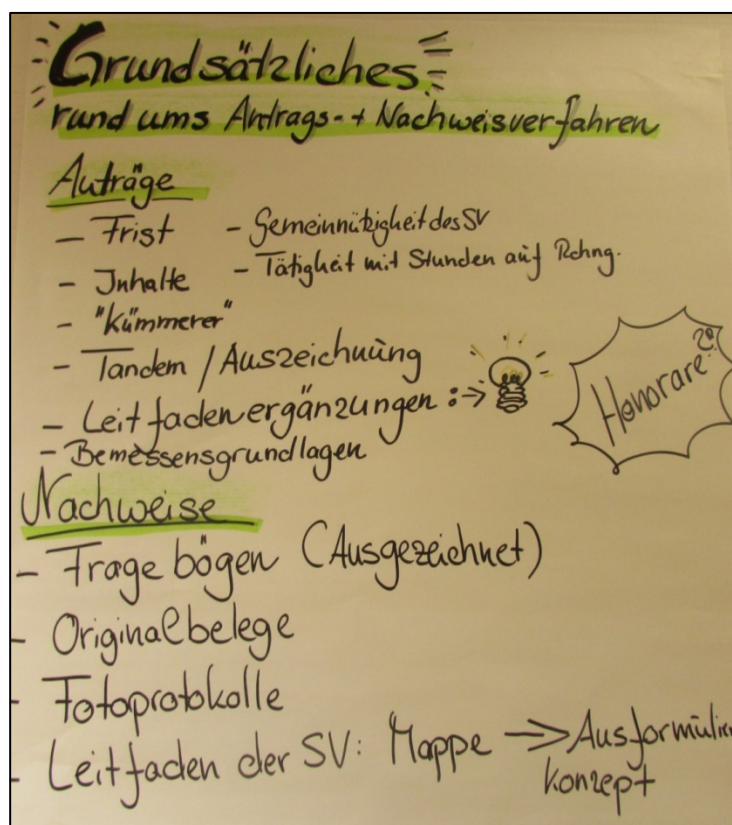 Grundsätzliches
rund ums Antrags- + Nachweisverfahren
Anträge
- Frist - Gemeinnützigkeit des SV
- Inhalte - Tätigkeit mit Stunden auf Rchng.
- "Kümmerer"
- Tandem / Auszeichnung
- Leitfadenergänzungen :→
Honorare ?
- Bemessensgrundlagen
Nachweise
- Fragebögen (Ausgezeichnet)
- Originalbelege
- Fotoprotokolle
- Leitfaden der SV: Mappe →
konzept